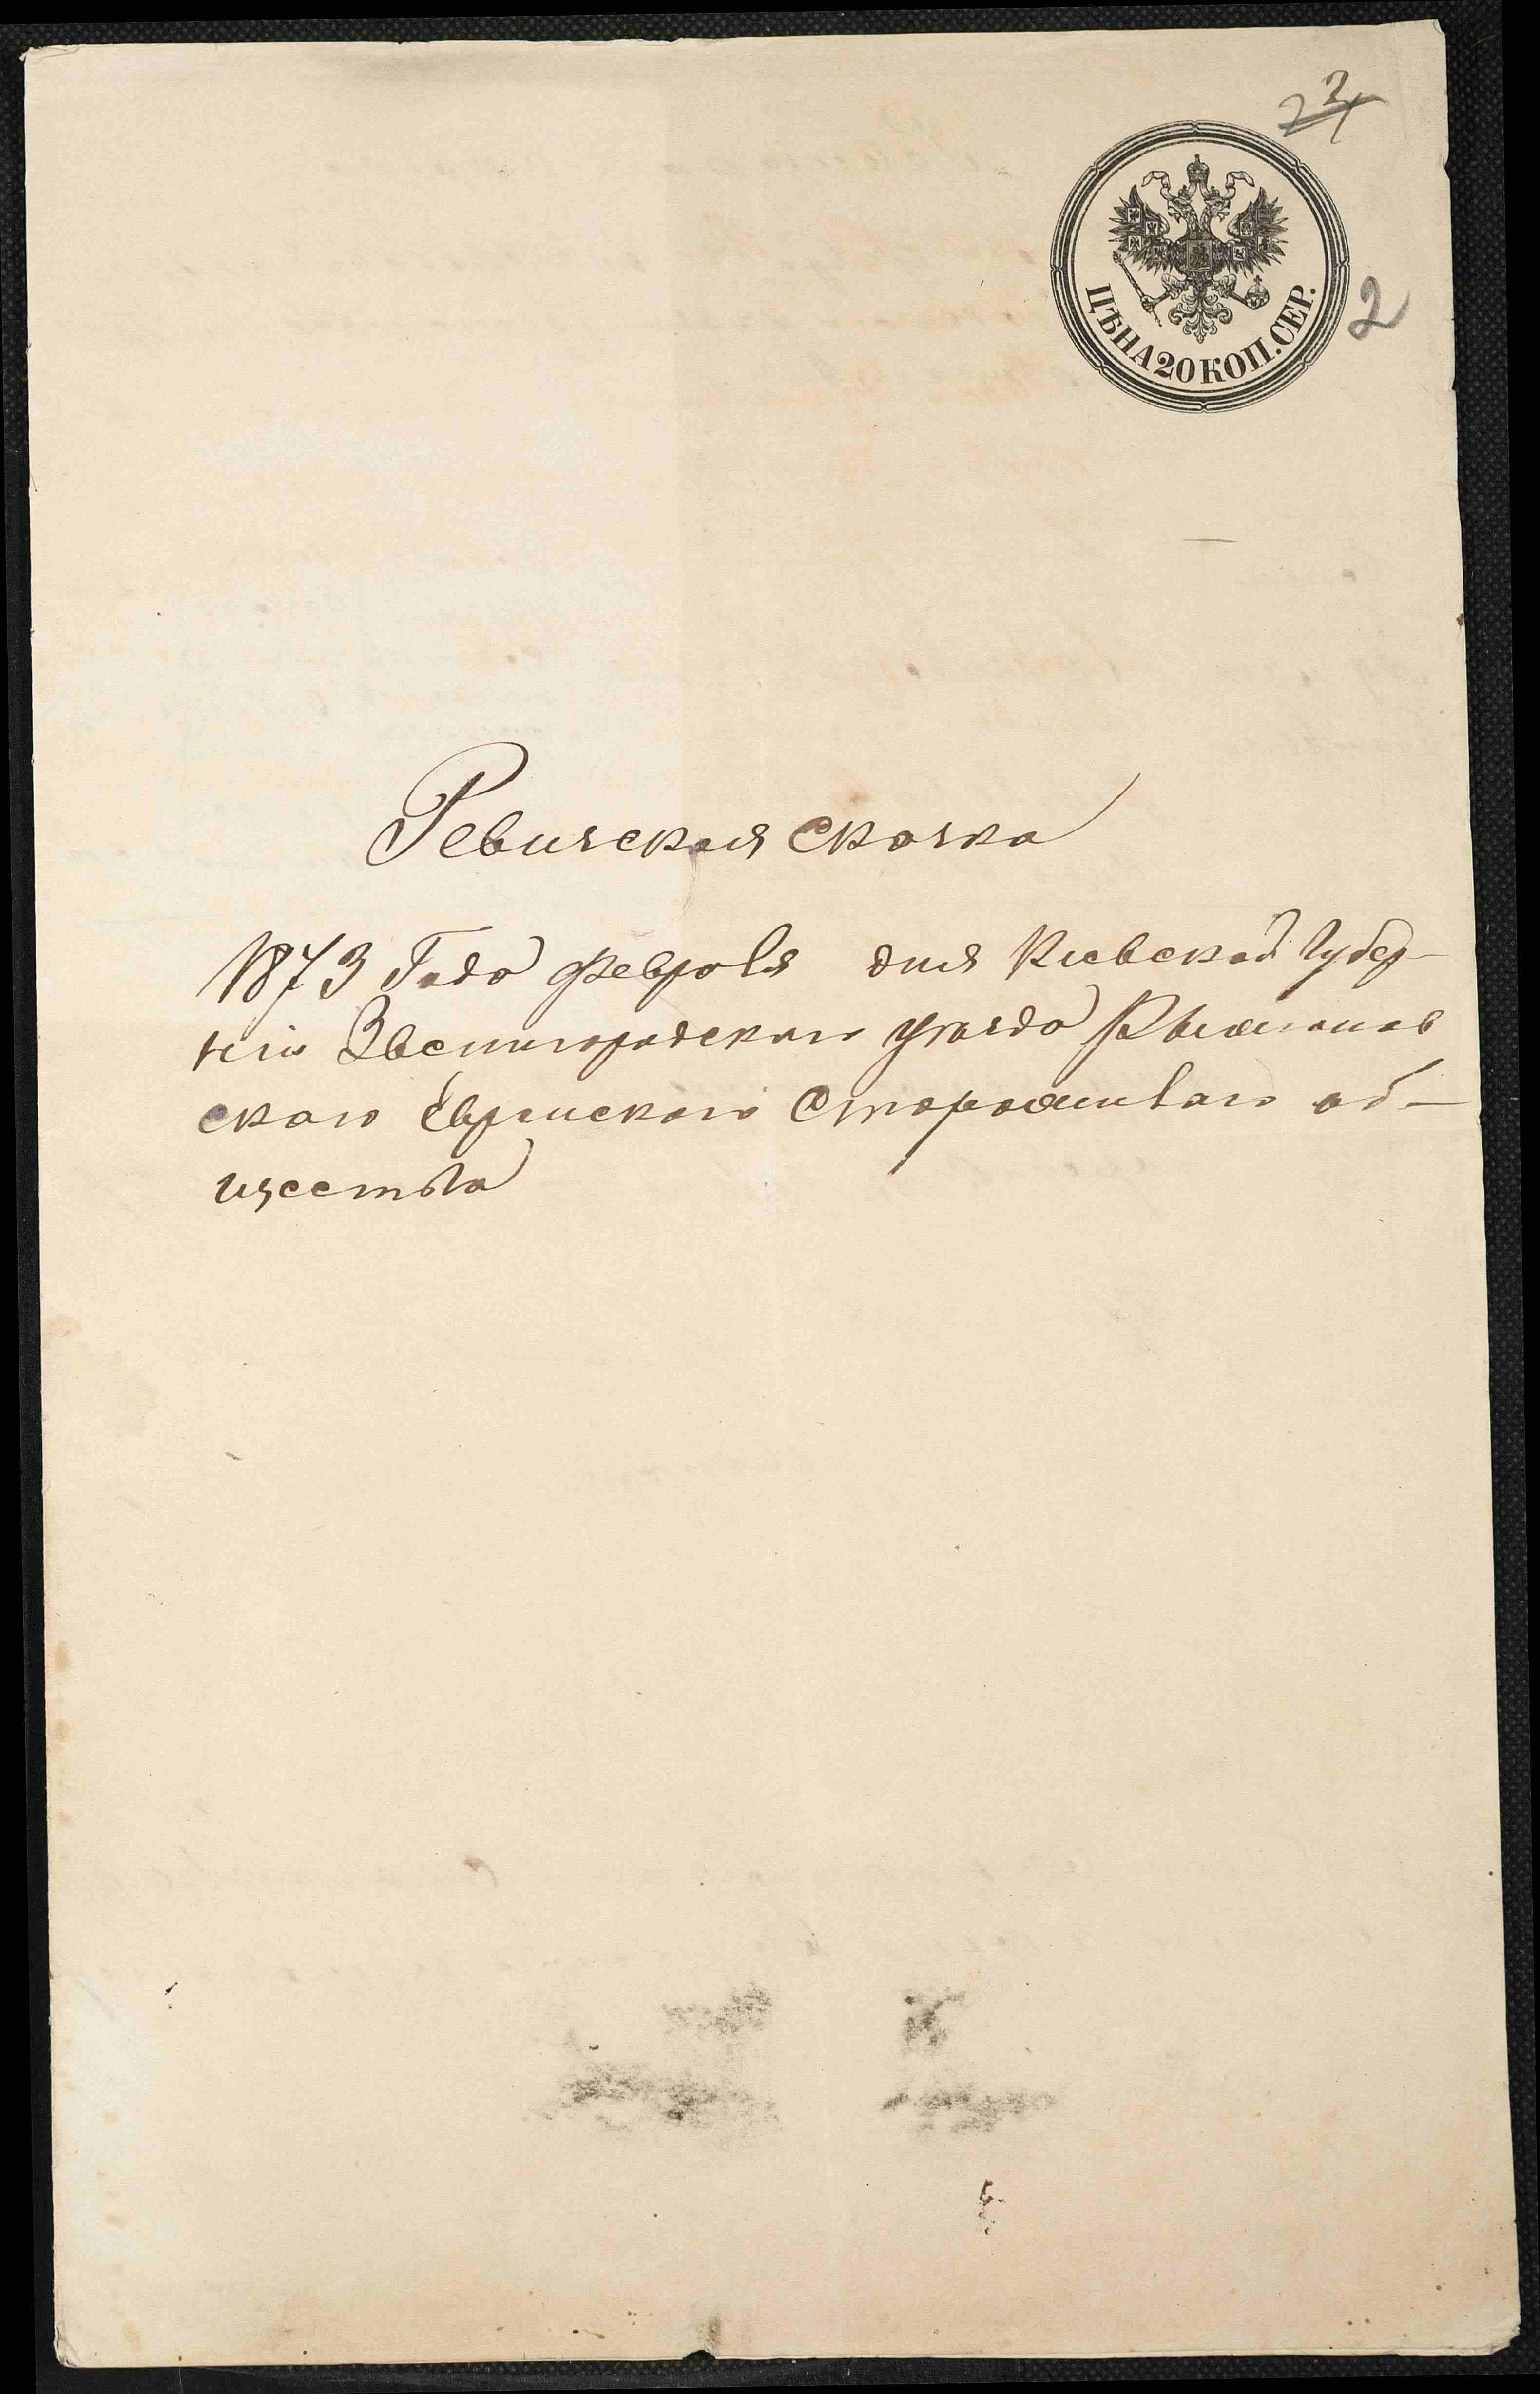 23
ЦѢНА 20 КОП. СЕР.
2
Ревизская сказка
1873 Года февраля дня Киевской Губер-
ніи Звенигородского уезда Рыжанов
ского Еврейского Старожилаго об-
щества